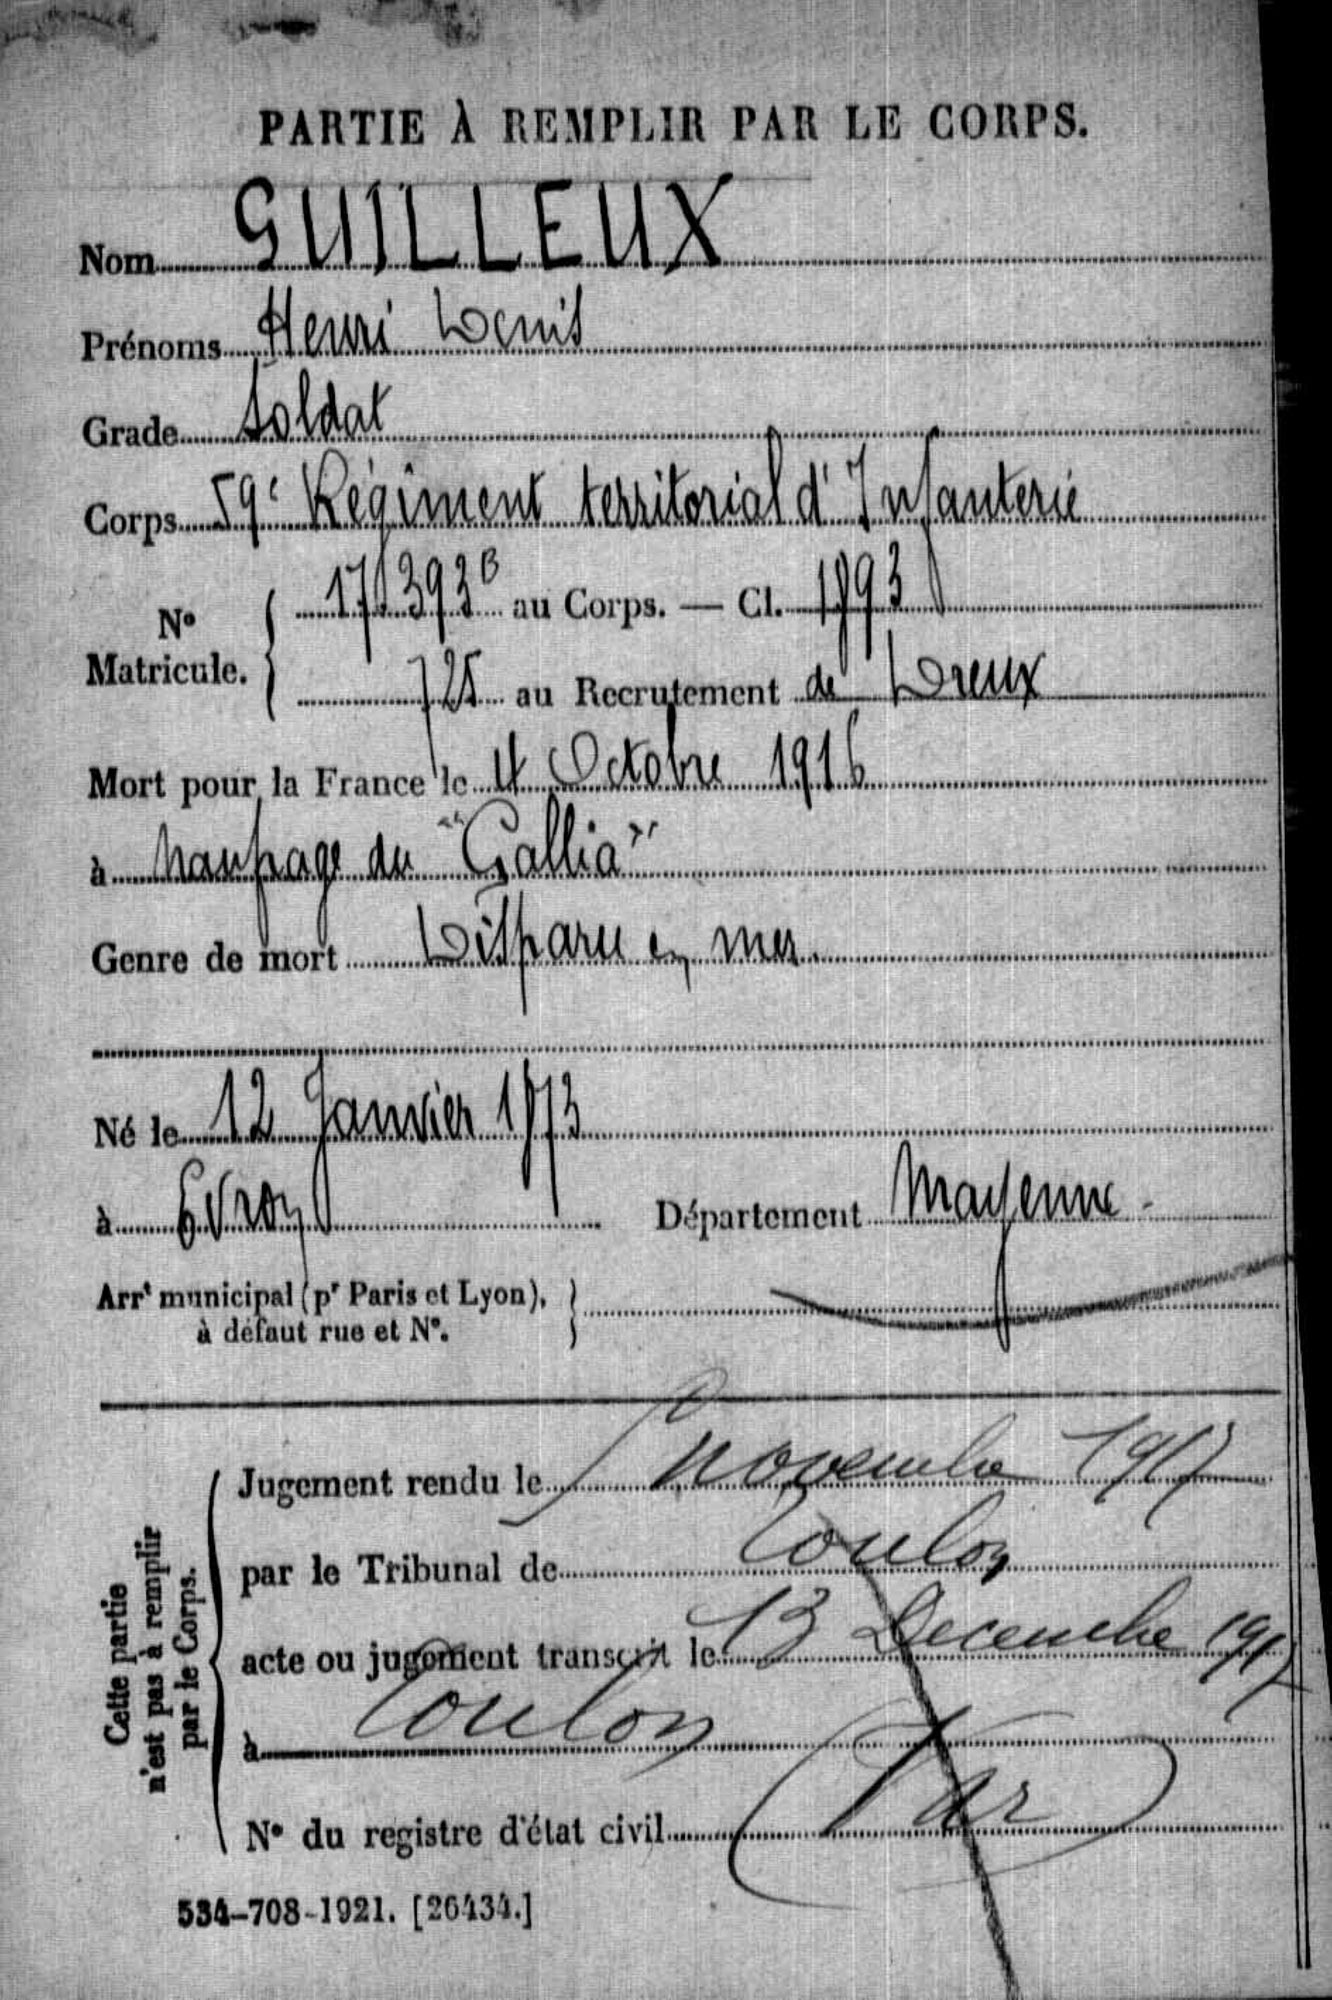 PARTIE À REMPLIR PAR LE CORPS.
Nom GUILLEUX
Prénoms Henri Denis
Grade Soldat
Corps 59e Régiment territorial d'Infanterie
No Matricule. { 17393B au Corps. — Cl. 1893
725 au Recrutement de Dreux
Mort pour la France le 4 Octobre 1916
à naufrage du "Gallia"
Genre de mort Disparu en mer.
Né le 12 Janvier 1873
à Evron Département Mayenne
Arrt municipal (pr Paris et Lyon),
à défaut rue et No. }
Cette partie
n'est pas à remplir
par le Corps.
Jugement rendu le Novembre 1917
par le Tribunal de Toulon
acte ou jugement transcrit le 13 Decembre 1917
à Toulon
(Var)
No du registre d'état civil
534-708-1921. [26434.]